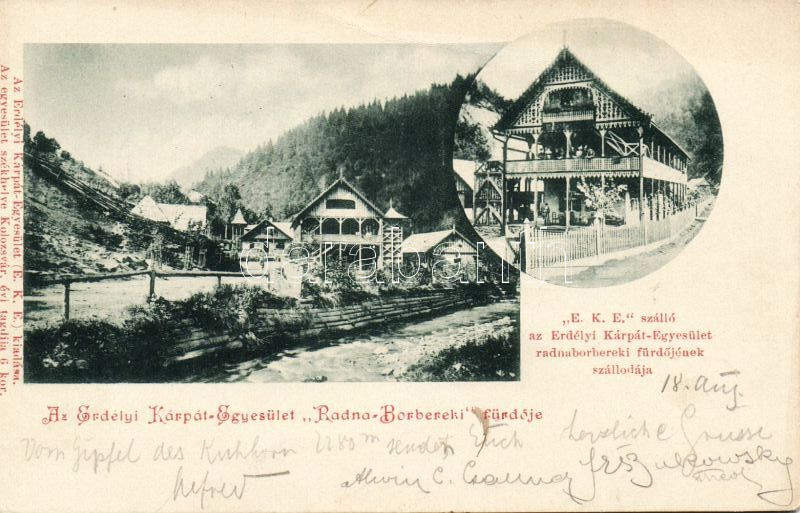 Az Erdélyi Kárpát-Egyesület (E. K. E.) kiadása.
Az egyesület székhelye Kolozsvár, évi tagdija 6 kor.
darabanth
„E. K. E.“ szálló
az Erdélyi Kárpát-Egyesület
radnaborbereki fürdőjének
szállodája
18. Aug.
Az Erdélyi Kárpát-Egyesület „Radna-Borbereki“ fürdője
Vom Gipfel des Kuhhorn 2280 m sendet Euch herzliche Grüsse
Alwin C.